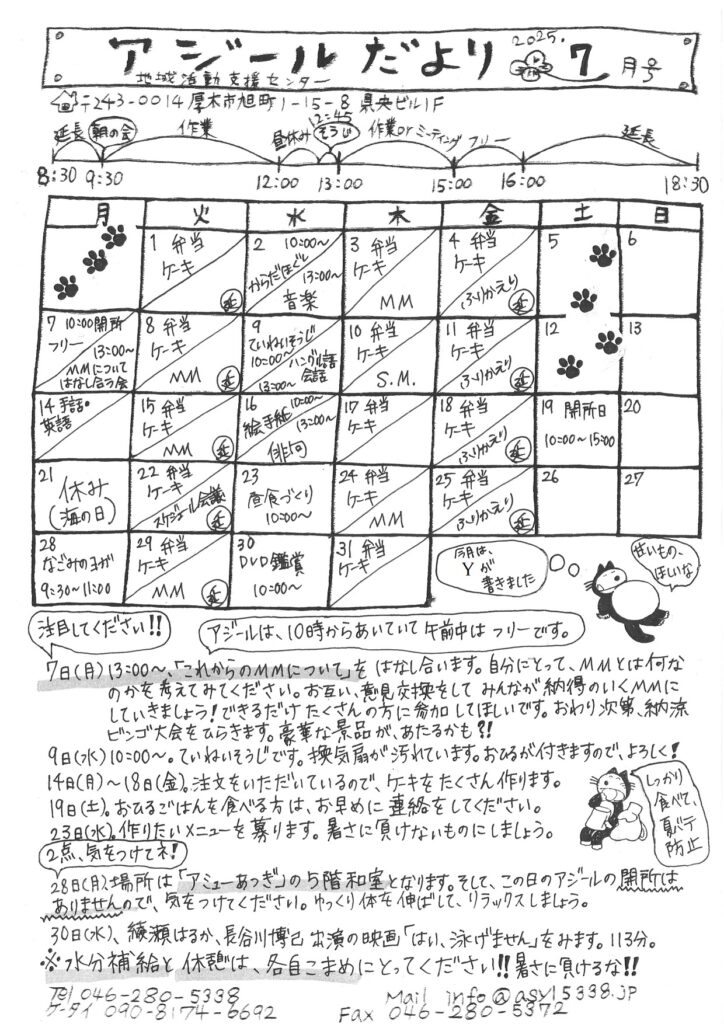 アジールだより 2025. 7月号
地域活動支援センター
〒243-0014 厚木市旭町1-15-8 県央ビル1F
延長 朝の会 作業 昼休み 12:45 そうじ 作業orミーティング フリー 延長
8:30 9:30 12:00 13:00 15:00 16:00 18:30
月 火 水 木 金 土 日
1 弁当
ケーキ
延
2 10:00~
からだほぐし
13:00~
音楽
3 弁当
ケーキ
MM
4 弁当
ケーキ
ふりかえり
延
5
6
7 10:00開所
フリー
13:00~
MMについて
はなし合う会
8 弁当
ケーキ
MM
延
9
ていねいそうじ
10:00~
ハングル語
会話
13:00~
10 弁当
ケーキ
S.M.
11 弁当
ケーキ
ふりかえり
延
12
13
14 手話・
英語
15 弁当
ケーキ
MM
延
16 10:00~
絵手紙
13:00~
俳句
17 弁当
ケーキ
18 弁当
ケーキ
ふりかえり
延
19 開所日
10:00~15:00
20
21
休み
(海の日)
22 弁当
ケーキ
スケジュール会議
延
23
昼食づくり
10:00~
24 弁当
ケーキ
MM
25 弁当
ケーキ
ふりかえり
延
26
27
28
なごみのヨガ
9:30~11:00
29 弁当
ケーキ
MM
延
30
DVD鑑賞
10:00~
31 弁当
ケーキ
今月は、
Yが
書きました
ぜいもの、
ほしいな
注目してください!!
アジールは、10時からあいていて午前中はフリーです。
7日(月)13:00~、「これからのMMについて」をはなし合います。自分にとって、MMとは何な
のかを考えてみてください。お互い、意見交換をしてみんなが納得のいくMMに
していきましょう!できるだけたくさんの方に参加してほしいです。おわり次第、納涼
ビンゴ大会をひらきます。豪華な景品が、あたるかも?!
9日(水)10:00~。ていねいそうじです。換気扇が汚れています。おひるが付きますので、よろしく!
14日(月)~18日(金)。注文をいただいているので、ケーキをたくさん作ります。
19日(土)。おひるごはんを食べる方は、お早めに連絡をしてください。
23日(水)。作りたいメニューを募ります。暑さに負けないものにしましょう。
しっかり
食べて、
夏バテ
防止
2点、気をつけてネ!
28日(月)、場所は「アミューあつぎ」の5階和室となります。そして、この日のアジールの開所は
ありませんので、気をつけてください。ゆっくり体を伸ばして、リラックスしましょう。
30日(水)、綾瀬はるか、長谷川博己出演の映画「はい、泳げません」をみます。113分。
※水分補給と休憩は、各自こまめにとってください!!暑さに負けるな!!
Tel 046-280-5338 Mail info@asyl5338.jp
ケータイ 090-8174-6692 Fax 046-280-5372